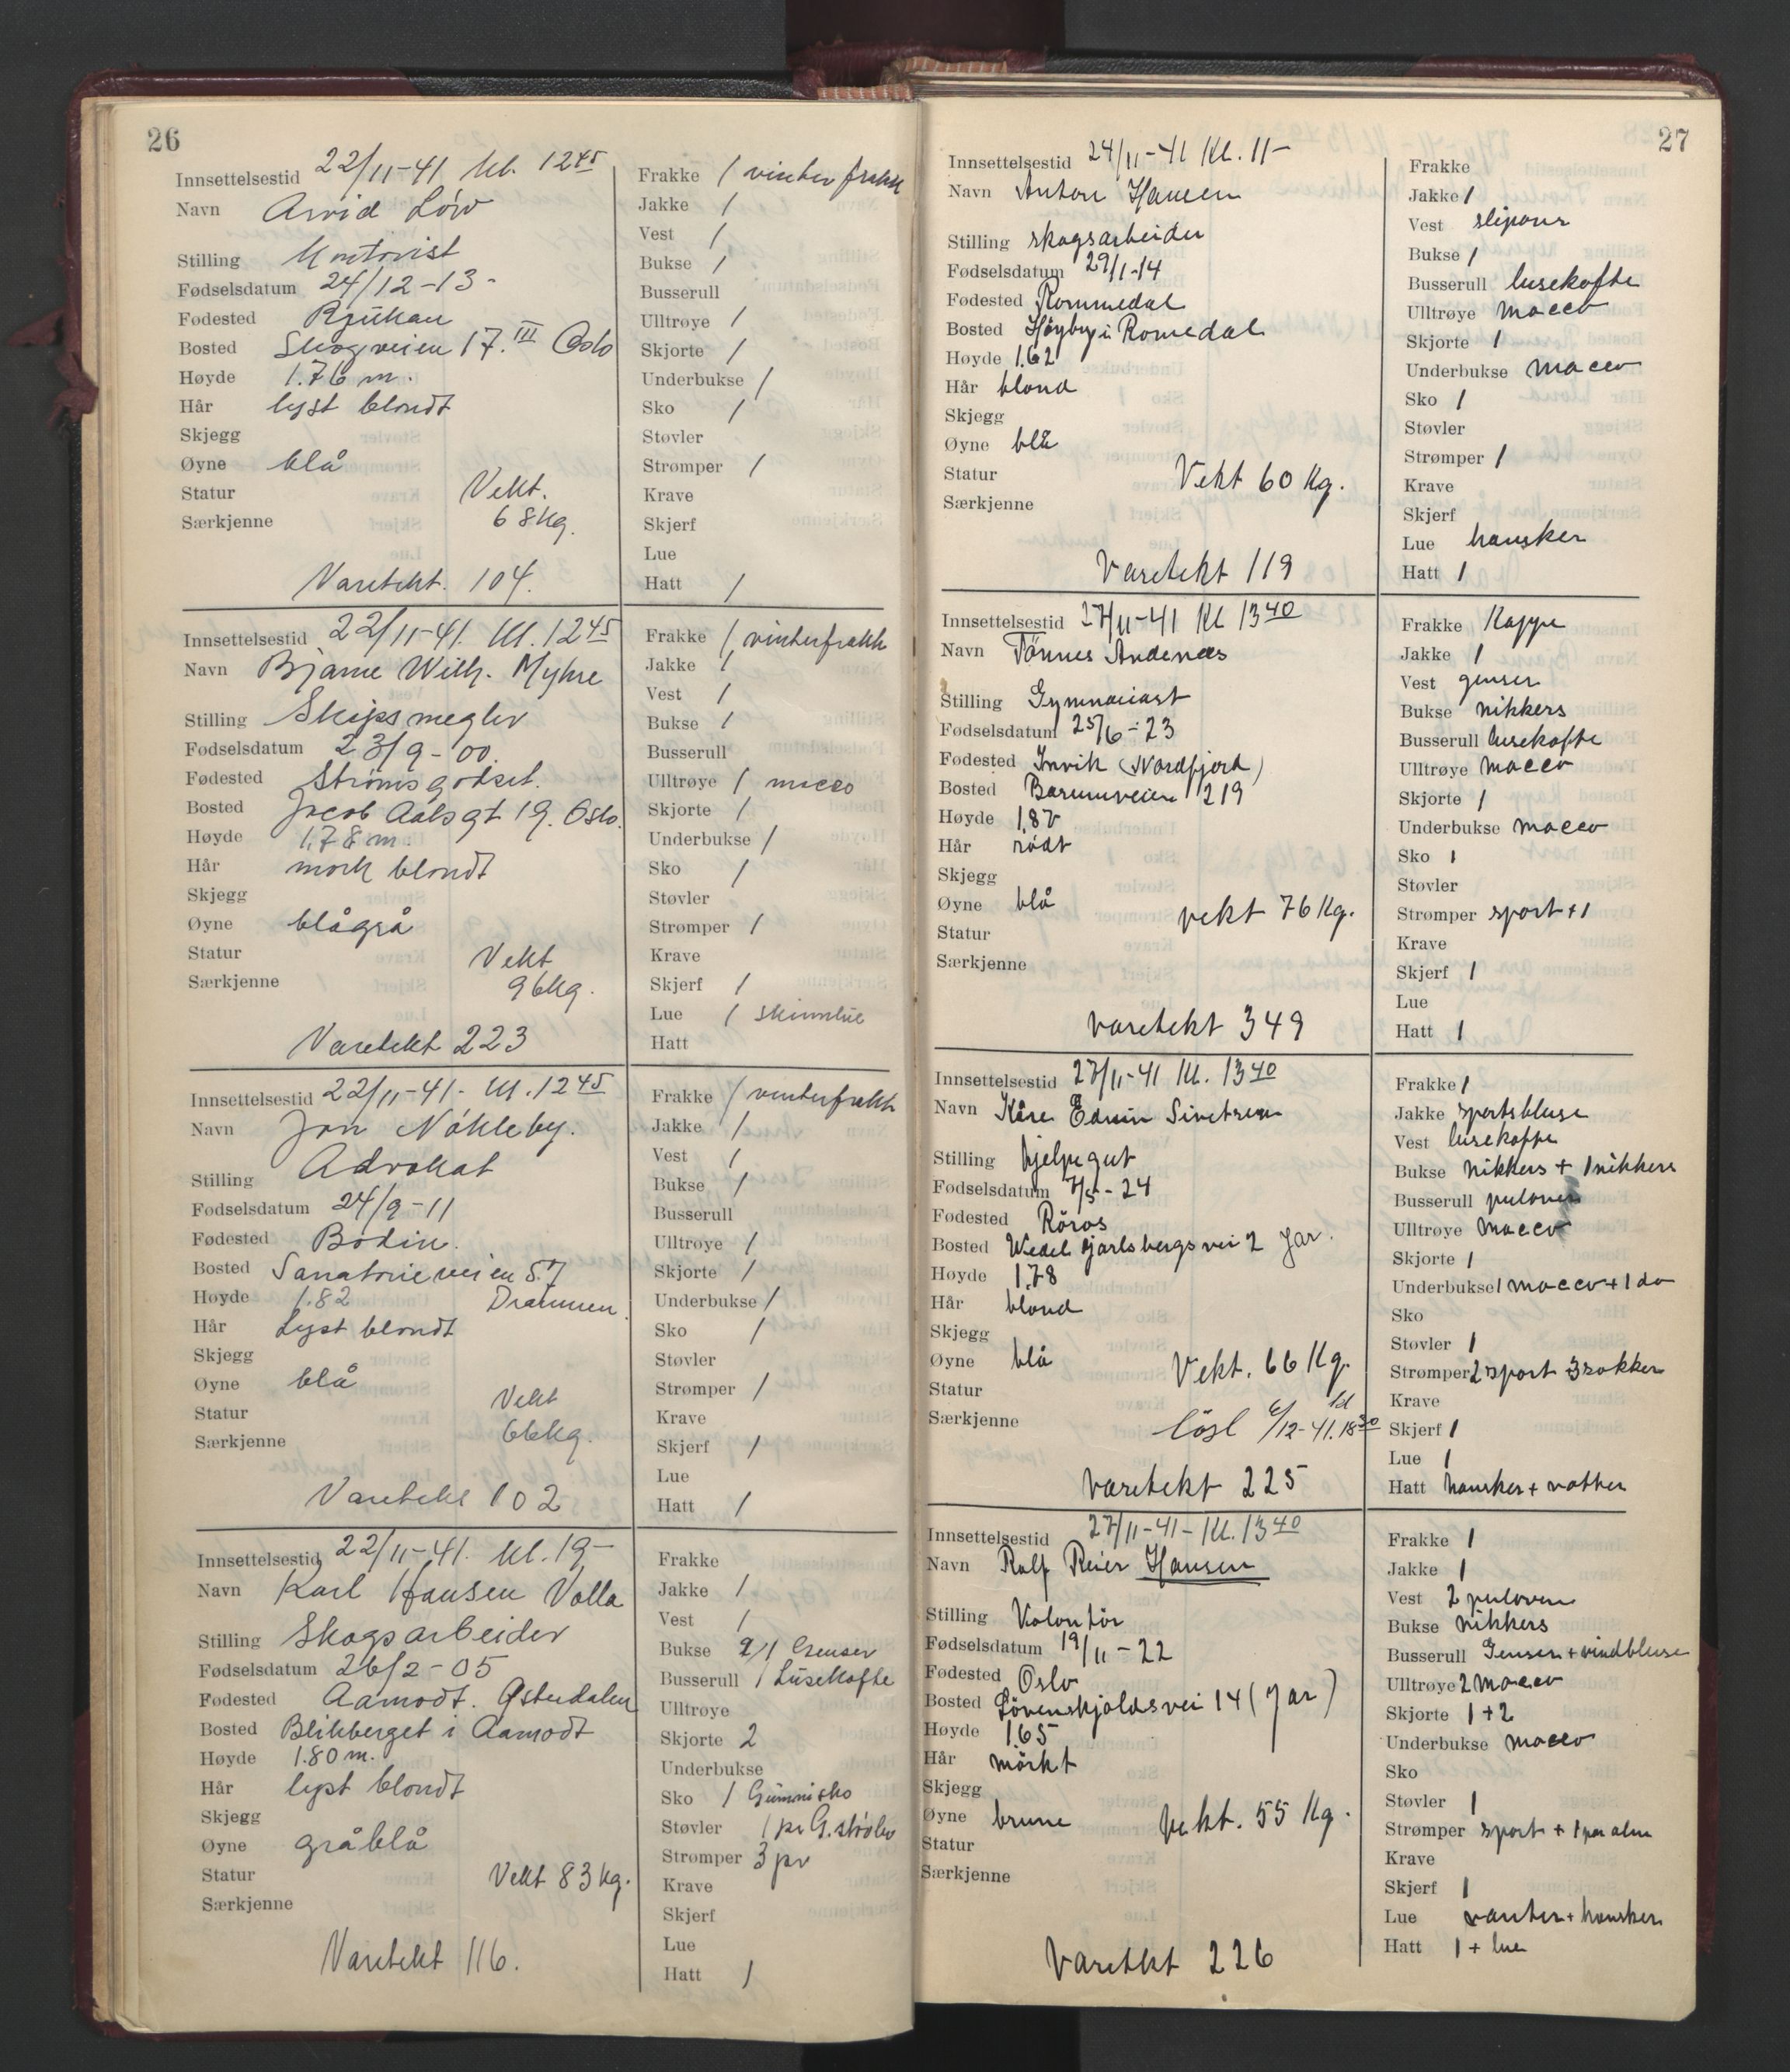 26
Innsettelsestid 22/11-41 kl. 12 45
Navn Arvid Löw
Stilling Kontorist
Fødselsdatum 24/12-13-
Fødested Rjukan
Bosted Skogveien 17. III Oslo
Høyde 1.76 m.
Hår lyst blondt
Skjegg
Øyne blå
Statur Vekt.
Særkjenne 68kg.
Varetekt. 104.
Frakke / vinterfrakk
Jakke /
Vest /
Bukse /
Busserull
Ulltrøye /
Skjorte /
Underbukse /
Sko /
Støvler
Strømper /
Krave
Skjerf
Lue
Hatt /
Innsettelsestid 22/11-41. kl. 12 45
Navn Bjarne Wilh. Myhre
Stilling Skipsmegler
Fødselsdatum 23/9-00.
Fødested Strömsgodset.
Bosted Jacob Aalsgt 19. Oslo.
Høyde 1,78 m.
Hår mork blondt
Skjegg
Øyne blågrå
Statur Vekt
Særkjenne 96kg.
Varetekt 223
Frakke / vinterfrakk
Jakke /
Vest /
Bukse /
Busserull
Ulltrøye / macco
Skjorte /
Underbukse /
Sko /
Støvler
Strømper /
Krave
Skjerf /
Lue / skinnlue
Hatt
Innsettelsestid 22/11-41- kl. 12 45
Navn Jon Nökleby.
Stilling Advokat
Fødselsdatum 24/9-11
Fødested Bodin.
Bosted Sanatorieveien 57
Høyde 1.82 Drammen
Hår Lyst blondt
Skjegg
Øyne blå
Statur Vekt
Særkjenne 66kg.
Varetekt 102
Frakke / vinterfrakk
Jakke /
Vest /
Bukse /
Busserull
Ulltrøye /
Skjorte /
Underbukse /
Sko /
Støvler
Strømper /
Krave
Skjerf /
Lue
Hatt /
Innsettelsestid 22/11-41. kl. 19-
Navn Karl Hansen Volla
Stilling Skogsarbeider
Fødselsdatum 26/2-05
Fødested Aamodt. Østerdalen
Bosted Blikberget i Aamodt
Høyde 1.80 m.
Hår lyst blondt
Skjegg
Øyne gråblå
Statur Vekt 83 kg.
Særkjenne
Varetekt 116.
Frakke
Jakke /
Vest /
Bukse 2/1 Genser
Busserull / Lusekofte
Ulltrøye
Skjorte 2
Underbukse
Sko / Gummisko
Støvler / pr G.støvler
Strømper 3 pr
Krave
Skjerf
Lue
Hatt /
27
Innsettelsestid 24/11-41 Kl. 11-
Navn Anton Hansen
Stilling skogsarbeider
Fødselsdatum 29/1-14
Fødested Rommedal
Bosted Høyby i Romedal
Høyde 1.62
Hår blond
Skjegg
Øyne blå
Statur Vekt 60 Kg.
Særkjenne
Varetekt 119
Frakke
Jakke 1
Vest slipover
Bukse 1
Busserull lusekofte
Ulltrøye macco
Skjorte 1
Underbukse macco
Sko 1
Støvler
Strømper 1
Krave
Skjerf
Lue hansker
Hatt 1
Innsettelsestid 27/11-41 Kl 13 40
Navn Tönnes Andenæs
Stilling Gymnasiast
Fødselsdatum 25/6-23
Fødested Invik (Nordfjord)
Bosted Bærumveien 219
Høyde 1,87
Hår rødt
Skjegg
Øyne blå vekt 76 Kg.
Statur
Særkjenne
varetekt 349
Frakke Kappe
Jakke 1
Vest genser
Bukse nikkers
Busserull lusekofte
Ulltrøye macco
Skjorte 1
Underbukse macco
Sko 1
Støvler
Strømper sport + 1
Krave
Skjerf 1
Lue
Hatt 1
Innsettelsestid 27/11-41 Kl. 13 40
Navn Kåre Edvin Sivetsen
Stilling hjelpegut
Fødselsdatum 7/5-24
Fødested Röros
Bosted Wedel Jarlsbergs vei 2 Jar.
Høyde 1,78
Hår blond
Skjegg
Øyne blå Vekt. 66 Kg.
Statur
Særkjenne lösl 6/12-41. kl 18 30
varetekt 225
Frakke 1
Jakke sportsbluse
Vest lusekofte
Bukse nikkers + 1 nikkers
Busserull pulover
Ulltrøye macco
Skjorte 1
Underbukse 1 macco + 1 do
Sko
Støvler 1
Strømper 2 sport 3 sokker
Krave
Skjerf 1
Lue 1
Hatt hansker + votter
Innsettelsestid 27/11-41- Kl. 13 40
Navn Rolf Reier Hansen
Stilling Volontör
Fødselsdatum 19/11-22
Fødested Oslo
Bosted Lövenskjolds vei 14 (Jar)
Høyde 1.65
Hår mörkt
Skjegg
Øyne brune vekt. 55 Kg.
Statur
Særkjenne
Varetekt 226
Frakke 1
Jakke 1
Vest 2 pulovere
Bukse nikkers
Busserull Genser + vindbluse
Ulltrøye 2 macco
Skjorte 1+2
Underbukse macco
Sko
Støvler 1
Strømper sport + 1 par
Krave
Skjerf 1
Lue vanter + hansker
Hatt 1 + lue